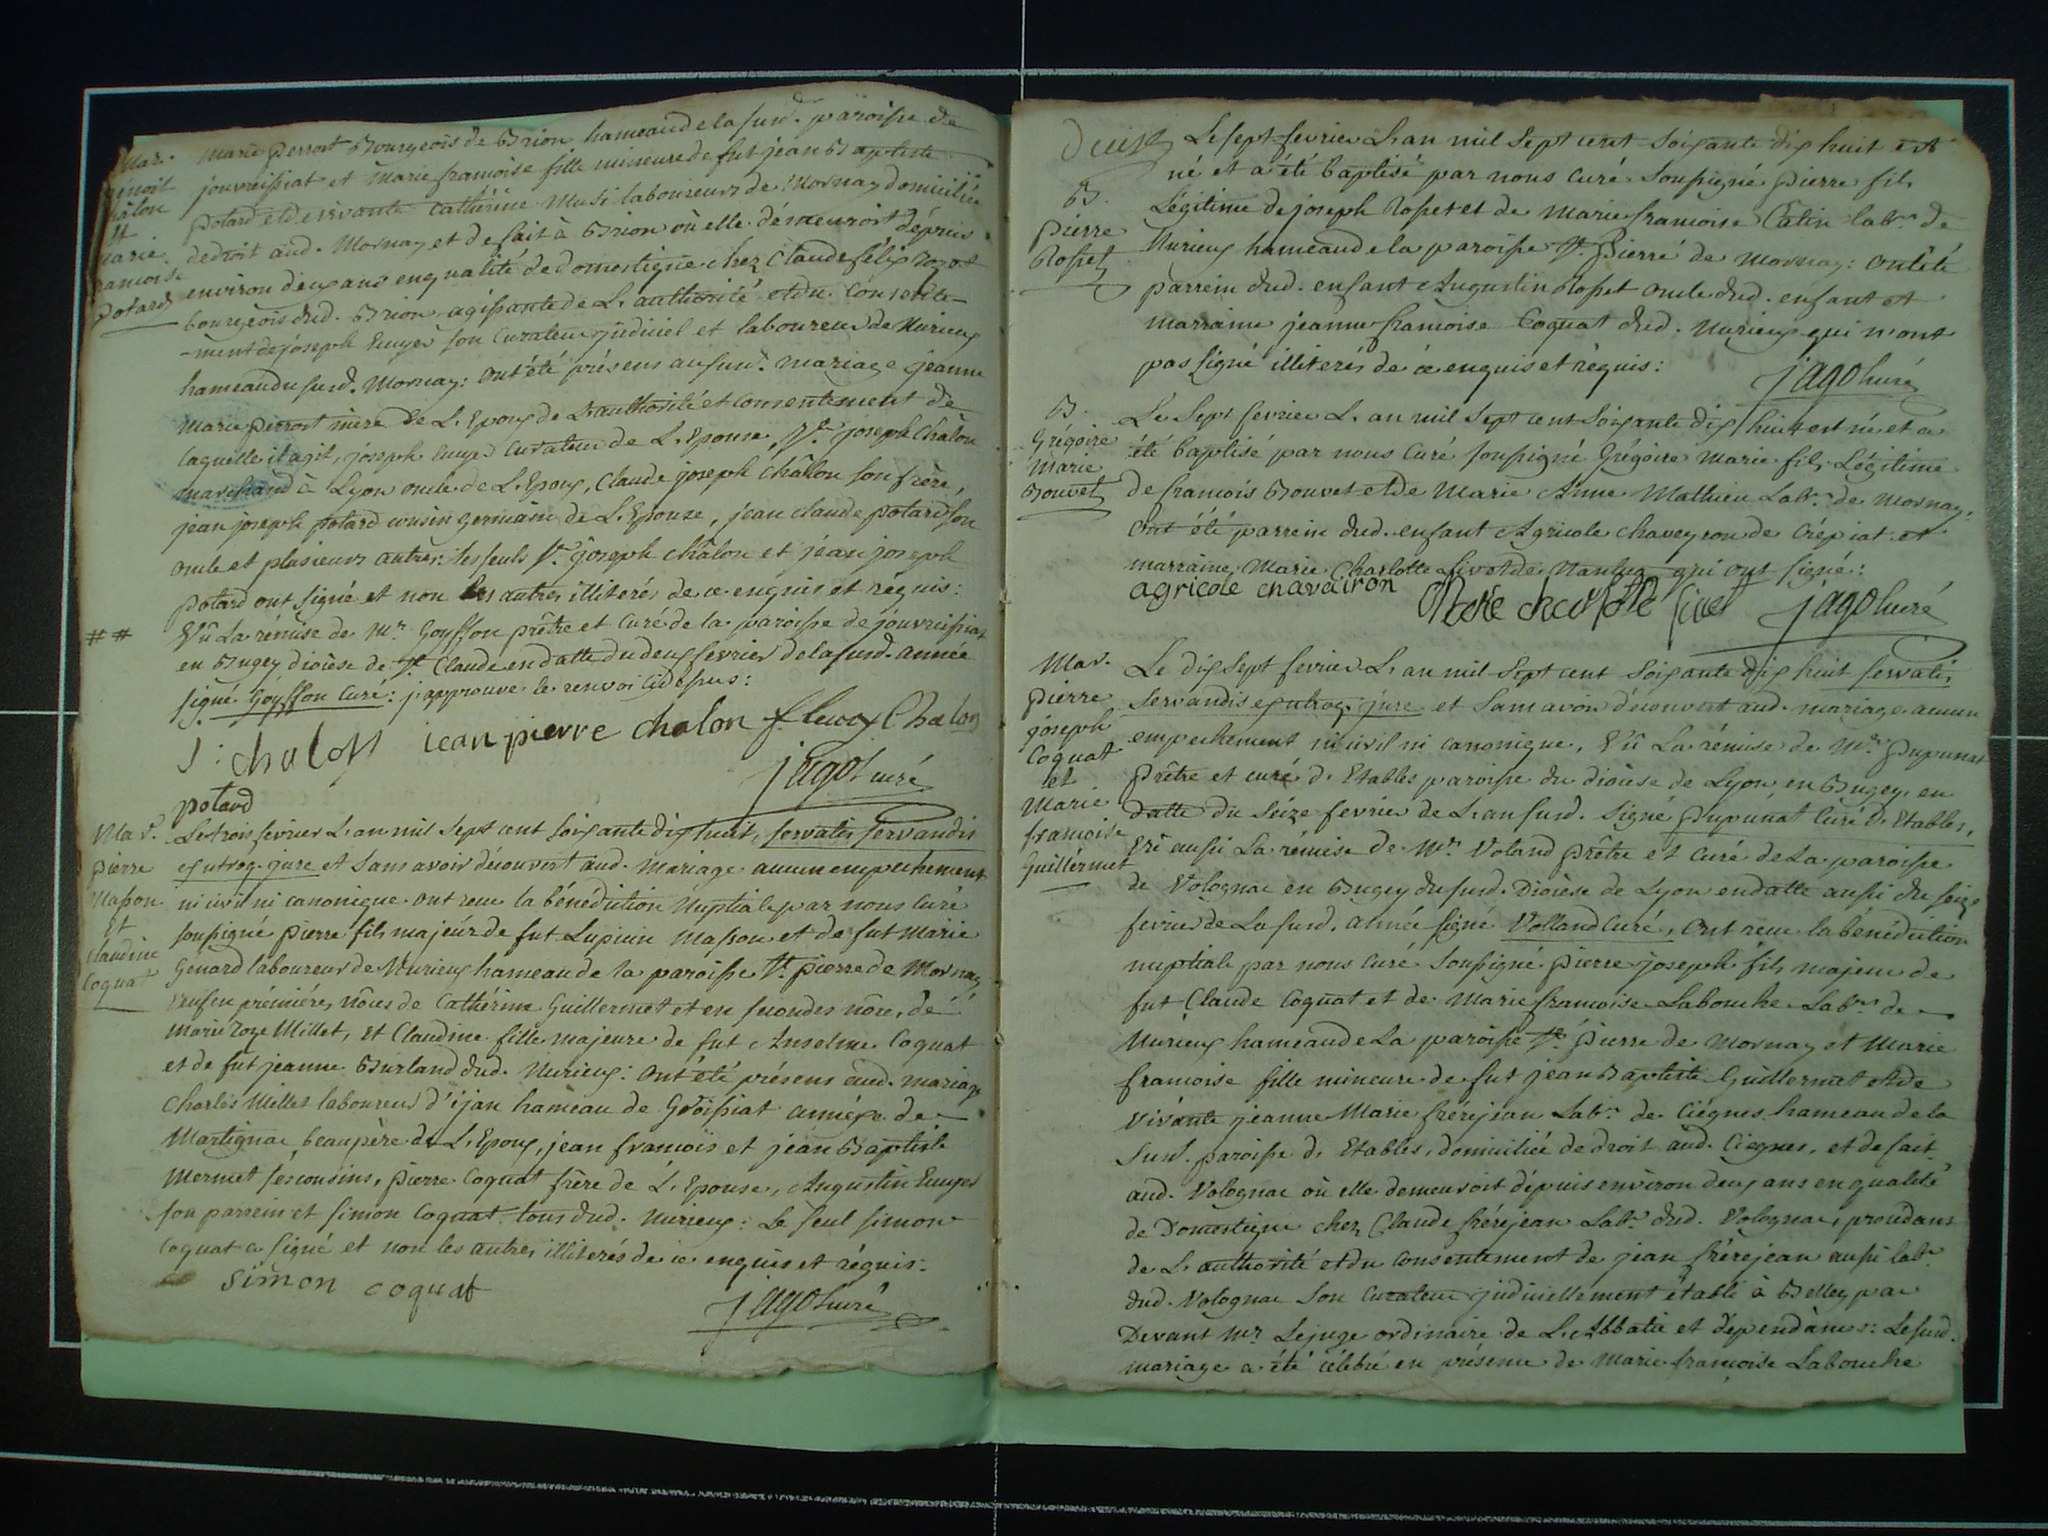 Mar.
Benoit
Châlon
et
Marie
francoise
Potard
Marie Perrost Bourgeois de Brion, hameau de la susd. paroisse de
jouvreissiat et Marie francoise fille mineure de fut jean Baptiste
Potard et de vivante Cathérine Musi laboureurs de Mornay domiciliée
de droit aud. Mornay et de fait à Brion où elle démeuroit dépuis
environ deux ans en qualité de domestique chez Claude félix
bourgeois dud. Brion agissante de L'authorité et du Consente-
-ment de joseph Euyer son Curateur judiciel et laboureur de Nurieux
hameau du susd. Mornay: ont été présens au susd. mariage jeanne
Marie Perrost mère de L'Epoux de L'authorité et consentement de
laquelle il agit, joseph Euyer Curateur de L'Epouse, Sr. joseph Châlon
marchand à Lyon oncle de L'Epoux, Claude joseph Châlon son frère,
jean joseph potard cousin germain de L'Epouse, jean claude potard son
oncle et plusieurs autres: les seuls Sr. joseph châlon et jean joseph
potard ont signé et non les autres illiterés de ce enquis et réquis:
## Vû La rémise de Mr. Goyffon prêtre et Curé de la paroisse de jouvreissiat
en Bugey diocèse de St. Claude en datte du deux fevrier de la susd. année
signé Goyffon Curé: j'approuve le renvoi cidessus:
J: chalon jean pierre chalon fleury Chalon
jago curé
potard
Mar.
Pierre
Masson
Et
Claudine
Coquat
Le trois fevrier L'an mil sept cent soixante dix huit, servatis servandis
ex utroq. jure et sans avoir découvert aud. Mariage aucun empechement
ni civil ni canonique ont reçu la bénédiction Nuptiale par nous Curé
soussigné Pierre fils majeur de fut Lupicin Masson et de fut Marie
Genard laboureur de Nurieux hameau de la paroisse St. pierre de Mornay
veuf en prémiéres nôces de Cathérine Guillermet et en secondes nôces, de
Marie Millet, et Claudine fille majeure de fut Anselme Coquat
et de fut jeanne Burland dud. Nurieux: ont été présens aud. mariage
Charles Millet laboureur d'ijan hameau de Groissiat annéxe de
Martignac beaupère de L'Epoux, jean francois et jean Baptiste
Mermet ses cousins, Pierre Coquat frère de L'Epouse, Augustin Euyer
son parrein et simon Coquat tous dud. Nurieux: Le seul simon
Coquat a signé et non les autres illiterés de ce enquis et réquis:
simon coquat
jago curé
B.
Pierre
Rosset
Le sept fevrier L'an mil sept cent soixante dix huit est
né et a été baptisé par nous curé soussigné pierre fils
Légitime de joseph Rosset et de Marie francoise Catin labr. de
Nurieux hameau de la paroisse St. Pierre de Mornay: ont été
parrein dud. enfant Augustin Rosset oncle dud. enfant et
marraine jeanne francoise Coquat dud. Nurieux qui n'ont
pas signé illiterés de ce enquis et réquis:
jago curé
B.
Grégoire
Marie
Bouvet
Le Sept fevrier L'an mil sept cent soixante dix huit est né et a
été baptisé par nous Curé soussigné Grégoire Marie fils Légitime
de francois Bouvet et de Marie Anne Mathieu Labr. de Mornay:
ont été parrein dud. enfant Agricole chaveyron de Crépiat et
marraine Marie Charlotte Sivet de Nantua qui ont signé:
agricole chavairon Marie charlotte sivet jago curé
Mar.
Pierre
joseph
Coquat
et
Marie
francoise
Guillermet
Le dix sept fevrier L'an mil sept cent soixante dix huit servatis
servandis ex utroq. jure et sans avoir découvert aud. mariage aucun
empechement ni civil ni canonique, Vû La rémise de Mr. Pupunat
Prêtre et curé d'Etables paroisse du diocèse de Lyon en Bugey, en
datte du seize fevrier de L'an susd. signé Pupunat Curé d'Etables,
Vû aussi La rémise de Mr. Voland Prêtre et Curé de La paroisse
de Volognac en Bugey du susd. Diocèse de Lyon en datte aussi du seize
fevrier de La susd. année signé Volland Curé, ont reçu la bénédiction
nuptiale par nous curé soussigné pierre joseph fils majeur de
fut Claude Coquat et de Marie francoise Labouche Labrs. de
Nurieux hameau de La paroisse St. Pierre de Mornay et Marie
francoise fille mineure de fut jean Baptiste Guillermet et de
vivante jeanne Marie fréréjean Labr. de Ciégnes hameau de la
susd. paroisse d'Etables, domiciliée de droit aud. Ciegnes, et de fait
aud. Volognac où elle demeuroit dépuis environ deux ans en qualité
de Domestique chez Claude fréréjean Labr. dud. Volognac, procédant
de L'authorité et du consentement de jean fréréjean aussi labr.
dud. Volognac son Curateur judiciellement établi à Belley, par
Devant Mr. Lejuge ordinaire de L'Abbatie et dépendànces: Le susd.
mariage a été célébré en présence de Marie francoise Labouche